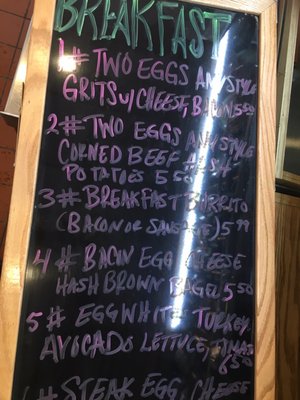 BREAKFAST
1# TWO EGGS ANY STYLE
GRITS w/ CHEESE, BACON 5.50
2# TWO EGGS ANY STYLE
CORNED BEEF HASH
POTATOES 5.50
3# BREAKFAST BURRITO
(BACON OR SAUSAGE) 5.99
4# BACON EGG CHEESE
HASH BROWN BAGEL 5.50
5# EGG WHITE TURKEY
AVOCADO LETTUCE,
6.50
# STEAK EGG, CHEESE